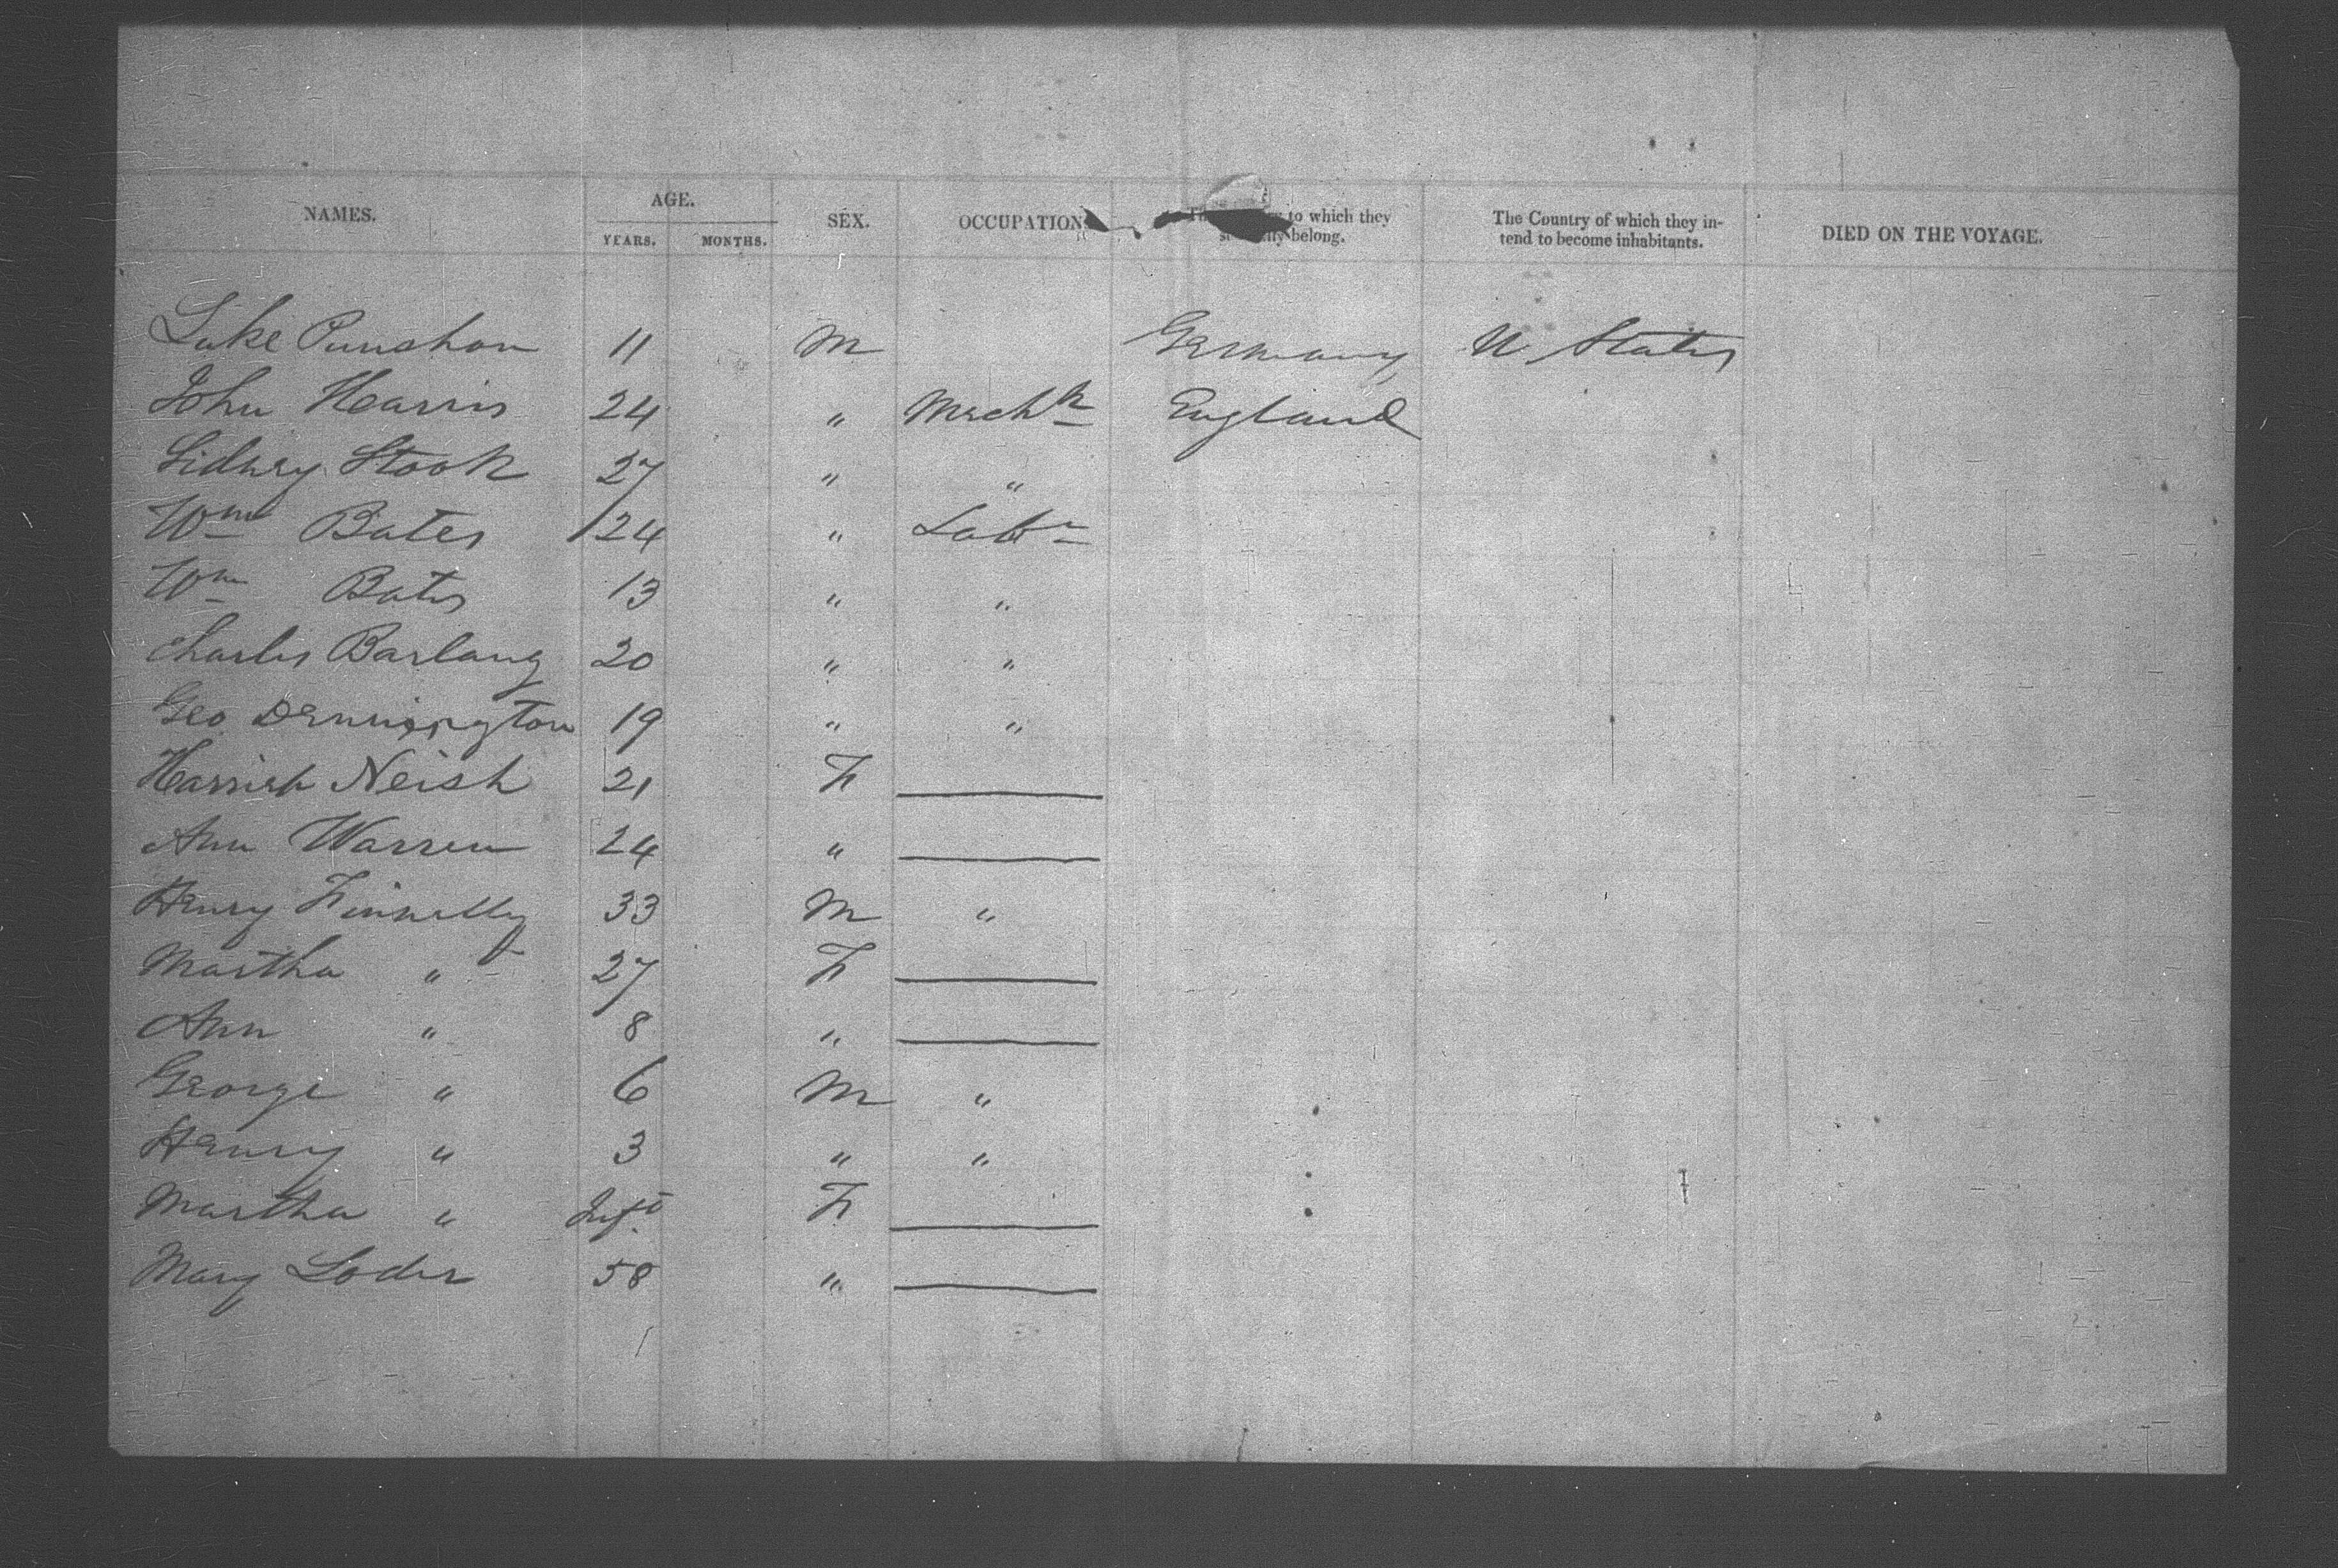 NAMES. AGE. SEX. OCCUPATION to which they belong. The Country of which they in- DIED ON THE VOYAGE.
YEARS. MONTHS. tend to become inhabitants.
Luke Punshon 11 M Germany U States
John Harris 24 " Mech England
Sidney Stook 27 " "
Wm Bates 24 " Labr
Wm Bates 13 " "
Charles Barlang 20 " "
Geo 19 " "
Neish 21 F
Ann Warren 24 "
Henry Finnelly 33 M "
Martha " 27 F
Ann " 8 "
George " 6 M "
Henry " 3 " "
Martha " Inft F
Mary Loder 58 "